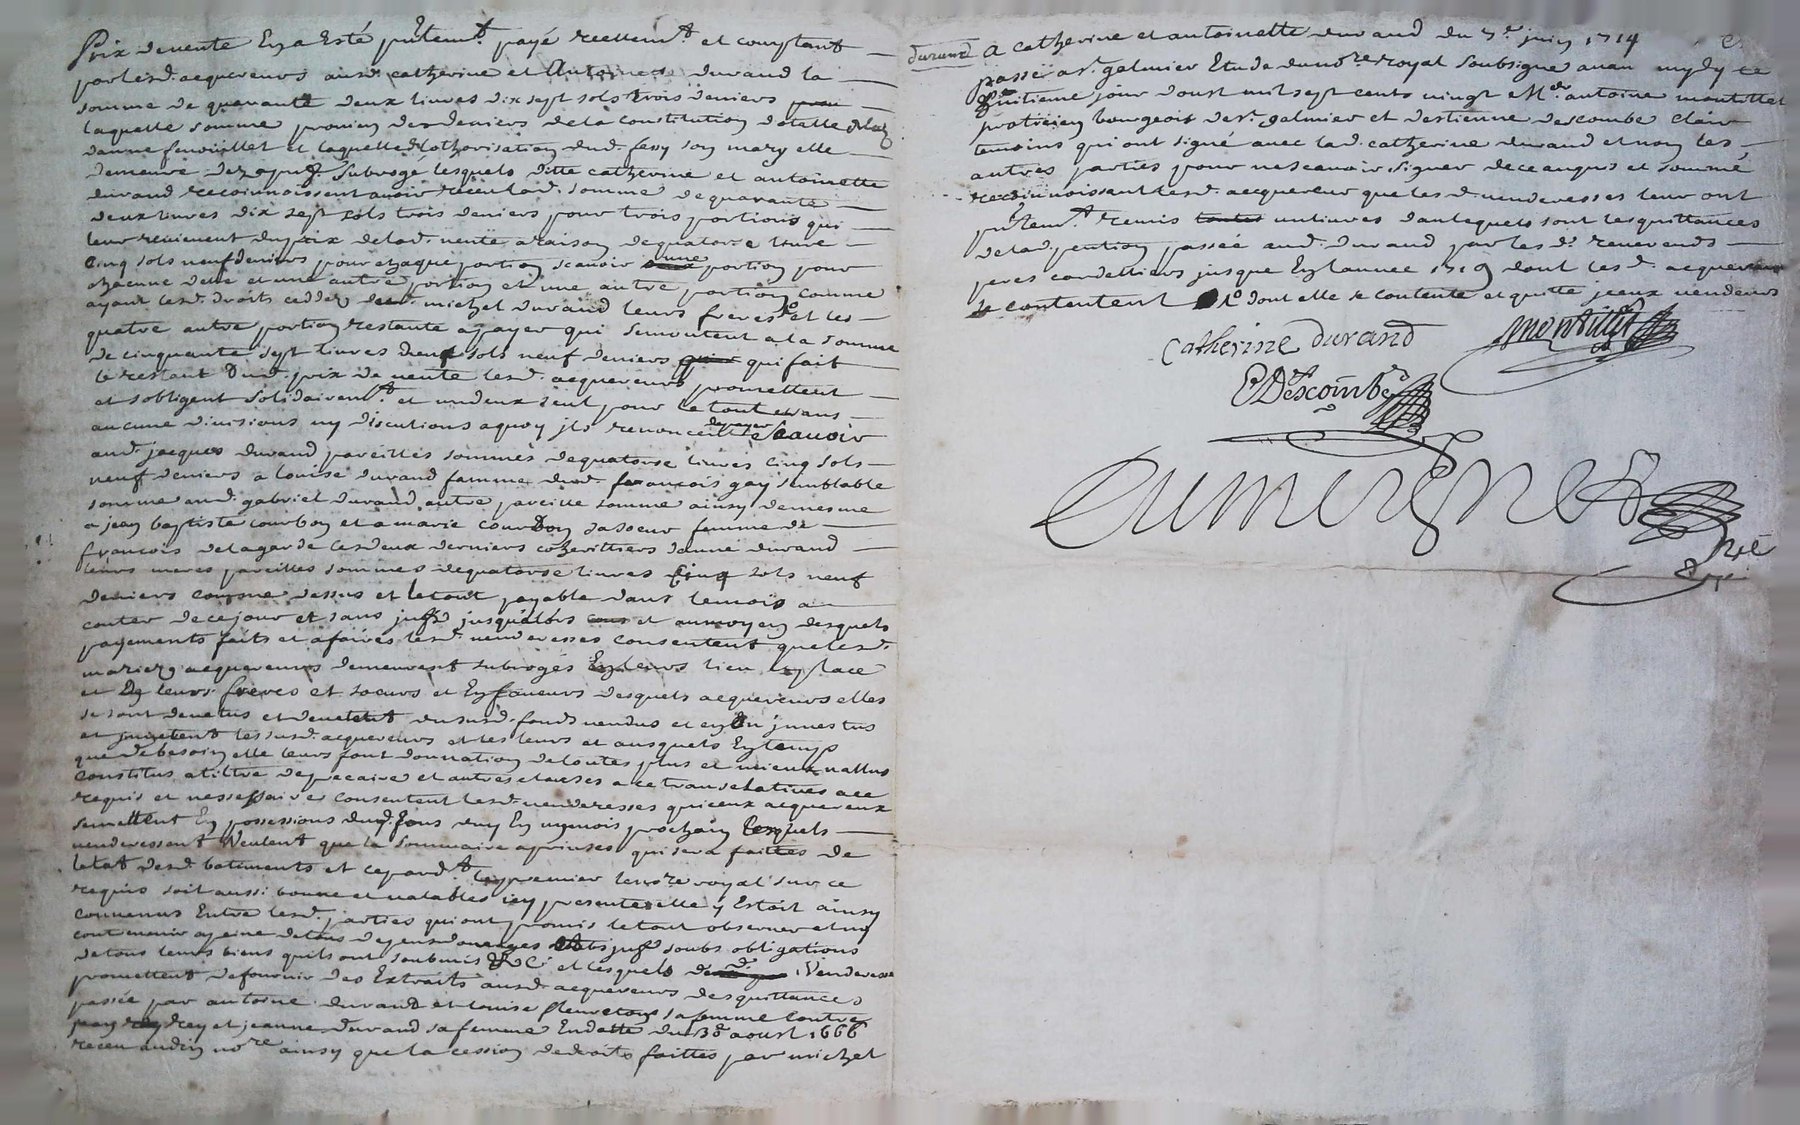 Prix de vente En a Esté p̃ntemt. payé reellemt. et comptant
par lesd. acquereurs ausd. catherine et Antoinette durand la
somme de quarante deux livres dix sept sols trois deniers
laquelle somme provien des deniers de la constitution dotalle de lad.
danne fenoüillet et laquelle de lothorisation dud. fessy son mary elle
demeure Subrogé lesquels ditte catherine et antoinette
durand reconnoissent avoir receu lad. somme de quarante
deux livres dix sept sols trois deniers pour trois portions qui
leur revienent du prix de lad. vente a raison de quatorse livre
cinq sols neuf deniers pour chaque portion scavoir une portion pour
chacune delle et une autre portion et une autre portion comme
ayant lesd. droits ceddez dud. michel durand leurs freres et les
quatre autre portion restante a payer qui semontent a la somme
de cinquante sept livres deux sols neuf deniers qui fait
le restant dud. prix de vente lesd. acquereurs promettent
et sobligent solidairemt. et un deux seul pour le tout sans
aucune divisions ny discutions a quoy ils renoncent de payer Scavoir
aud. jacques durand pareilles sommes de quatorse livres cinq sols
neuf deniers a louise durand famme dud. francois gay semblable
somme aud. gabriel durand autre pareille somme ainsy de mesme
a jean baptiste courbon et a marie courbon sa soeur femme de
francois delagarde ces deux derniers coherittiers danne durand
leurs meres pareilles sommes de quatorse livres cinq sols neuf
deniers comme dessus et le tout payable dans le mois a
conter de ce jour et sans jusqualors et au moyen desquels
payements faits et a faires lesd. venderesses consentent que lesd.
mariez acquereurs demeurent subrogés En leurs lieu et place
et de leurs freres et soeurs et En faveurs desquels acquereurs elles
se sont devetus et devetent du susd. fonds vendus et en ont investus
et investent les susd. acquereurs et les leurs et ausquels En temps
que de besoin elle leurs font donnation de toutes plus et mieux vallus
constitus a tiltre de precaire et autres clauses a ce translatives a ce
requis et nessessaires consentent lesd. venderesses que iceux acquereurs
semettent En possessions dud. fons dun En un mois prochain lesquels
venderessent Veulent que la sommaire aprinses qui sera faittes de
letat desd. batiments et cepand. le premier nore royal sur ce
requis soit aussi bonne et valables icy presentes elle y Estoit ainsy
convenus Entre lesd. parties qui ont promis le tout observer et ny
contrevenir a peine de tous depens domages soubs obligations
de tous leurs biens quils ont soubmis &c. et lesquels d. Venderesse
promettent de fournir des Extraits ausd. acquereurs des quittances
passée par antoine durand et louise fleureton sa femme contre
jean rey et jeanne durand sa femme En datte du 13e aoust 1666
receu audin nore ainsy que la cession de droits faittes par michel
durand A catherine et antoinette durand du 3e. juin 1714
passée a st. galmier Etude du nore royal soubsigné avan mydy ce
huitieme jour daoust mil sept cents vingt et Me. antoine montillet
praticien bourgeois de st. galmier et destienne descombe clair
temoins qui ont signé avec lad. catherine durand et non les
autres parties pour ne scavoir signer de ce enquis et sommé
reconnoissant lesd. acquereur que lesd. venderesses leur ont
p̃ntemt. remis un livres dans lequels sont les quittances
de lad. pention passée aud. durand par les ds. reverends
peres cordelliers jusque En lannee 1719 dont lesd. acquereurs
se contentent dont elle se contente et quitte jceux vendeurs
catherine durand
montillet
E Descombes
dumoignet
nore